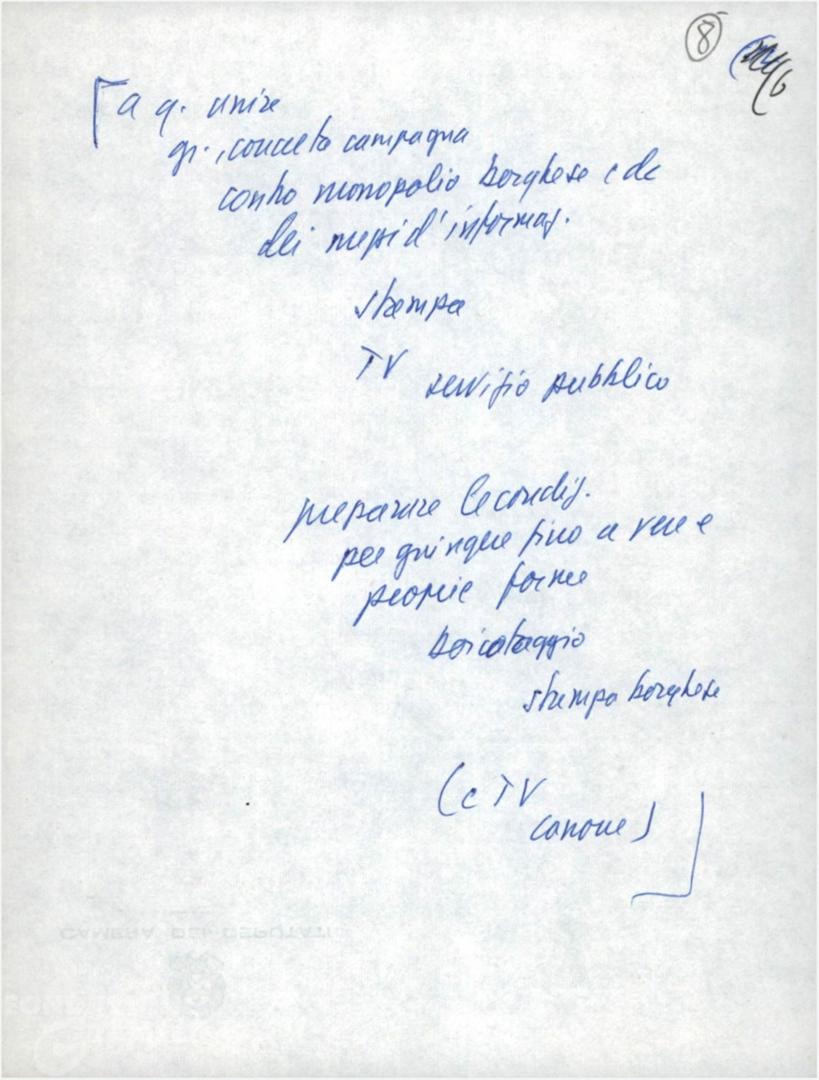 8
a q. unire
gr., concreta campagna
contro monopolio borghese e dc
dei mezzi d'informaz.
stampa
TV
servizio pubblico
preparare le condiz.
per giungere fino a vere e
proprie forme
boicotaggio
stampa borghese
(e TV
canone)
CAMERA DEI DEPUTATI